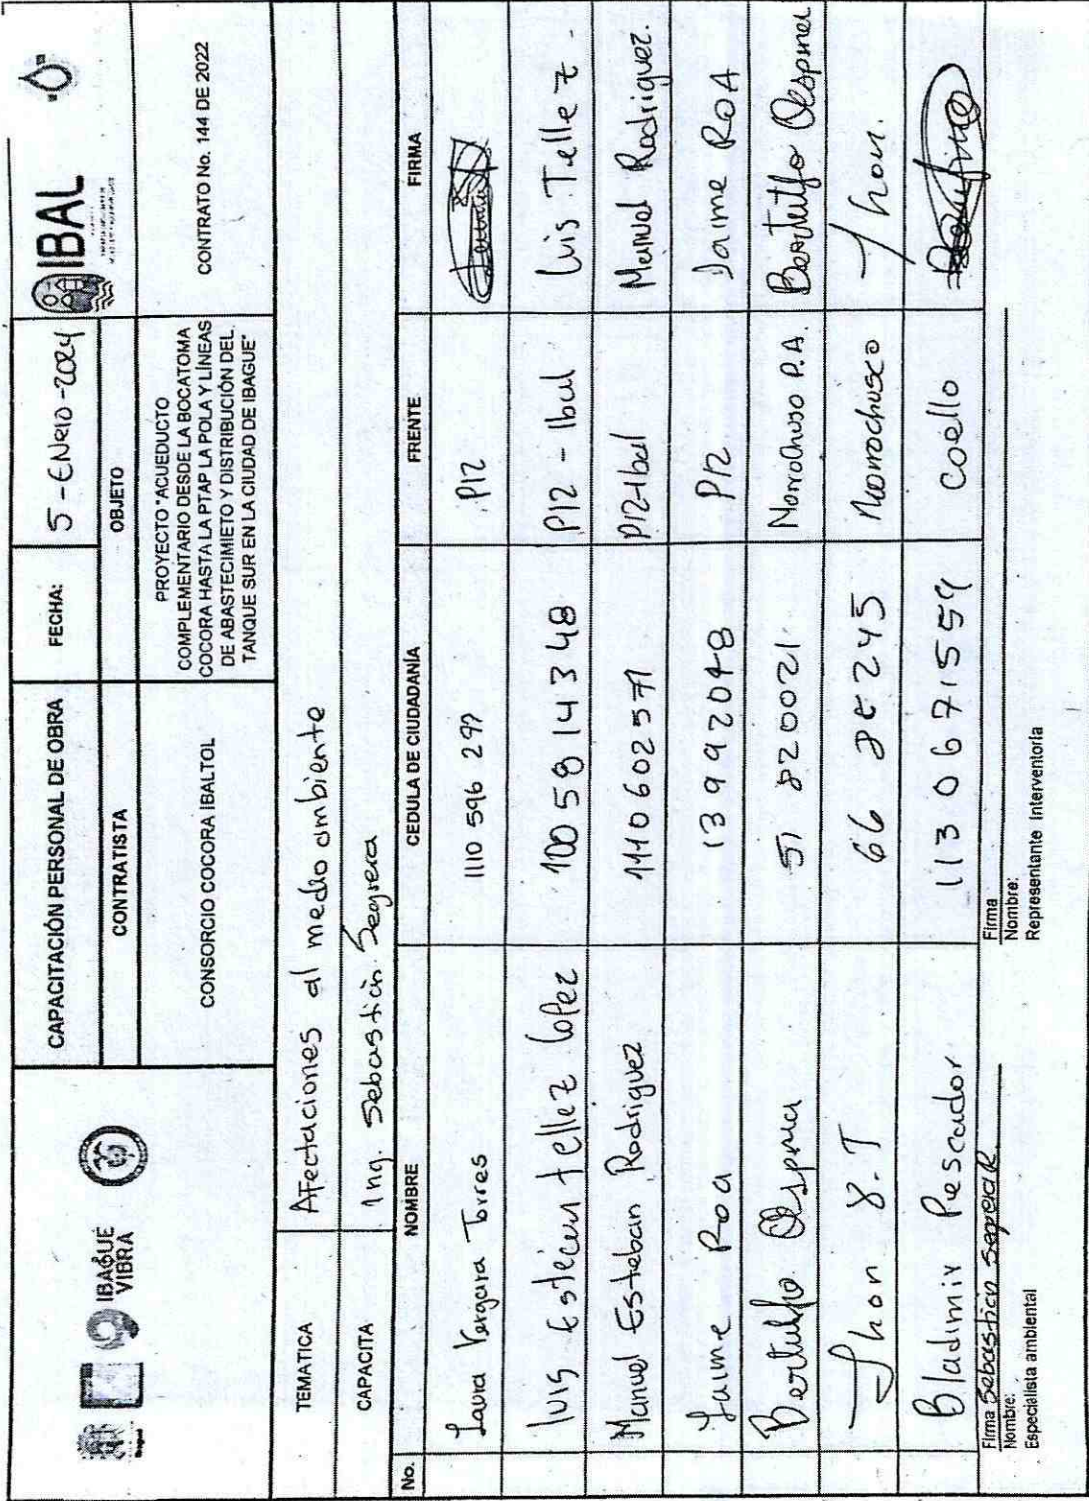 IBAGUÉ
VIBRA
CAPACITACIÓN PERSONAL DE OBRA
FECHA:
5-ENERO-2024
IBAL
CONTRATISTA
OBJETO
CONSORCIO COCORA IBALTOL
PROYECTO "ACUEDUCTO
COMPLEMENTARIO DESDE LA BOCATOMA
COCORA HASTA LA PTAP LA POLA Y LÍNEAS
DE ABASTECIMIETO Y DISTRIBUCIÓN DEL
TANQUE SUR EN LA CIUDAD DE IBAGUE"
CONTRATO No. 144 DE 2022
TEMATICA Afectaciones al medio ambiente
CAPACITA Ing. Sebastián Segrera
No. NOMBRE CEDULA DE CIUDADANÍA FRENTE FIRMA
Laura Vergara Torres 1110 596 297 P12
luis Estecun tellez lopez 1005814348 P12 - Ibal Luis Tellez.
Manuel Esteban Rodriguez 1110602571 P12-Ibal Manuel Rodriguez.
Jaime Roa 13992048 P12 Jaime ROA
Bertulfo Ospina 51 820021. P.A. Bertulfo Ospina
Jhon 8.T Jhon.
Bladimir Pescador 1130671554 Coello
Firma Sebastián
Nombre:
Especialista ambiental
Firma
Nombre:
Representante Interventoria